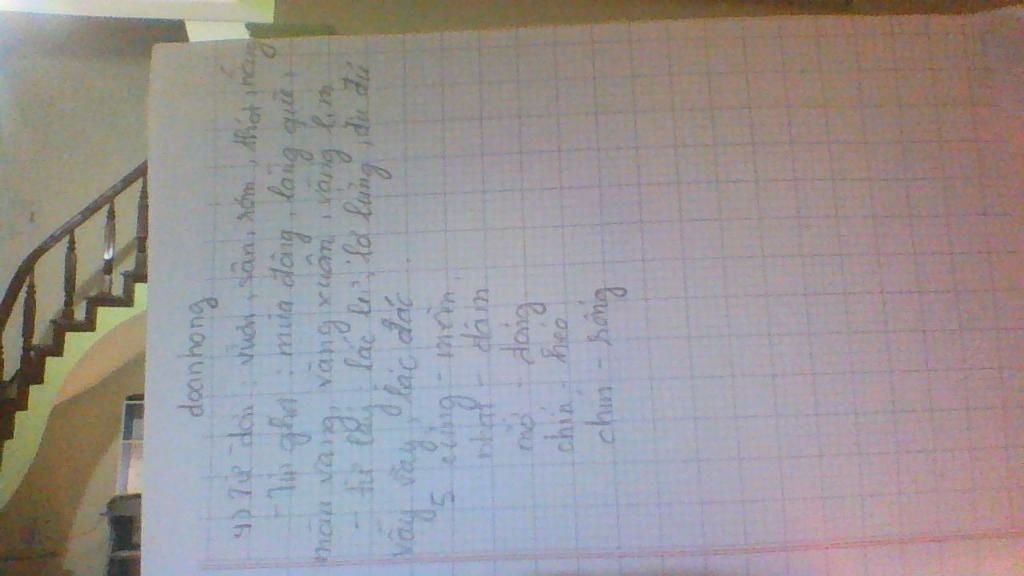 doanhong
4) Từ đơn : vườn, sân, rơm, thóc, nắng
- Từ ghép : mùa đông, làng quê,
màu vàng, vàng xuộm, vàng lịm
- từ láy : lắc lẻ, lơ lửng, đu đủ
vẫy vẫy, lác đác
5 cứng - mềm
nhạt - đậm
mờ - đóng
chín - héo
chín - sống